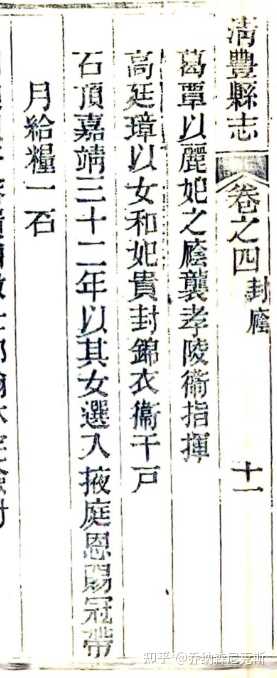 清豐縣志 卷之四 封廕 十一
葛覃以麗妃之廕襲孝陵衛指揮
高廷璋以女和妃貴封錦衣衞千戸
石頂嘉靖三十二年以其女選入掖庭恩賜冠帶
月給糧一石
知乎 @乔纳森尼克斯